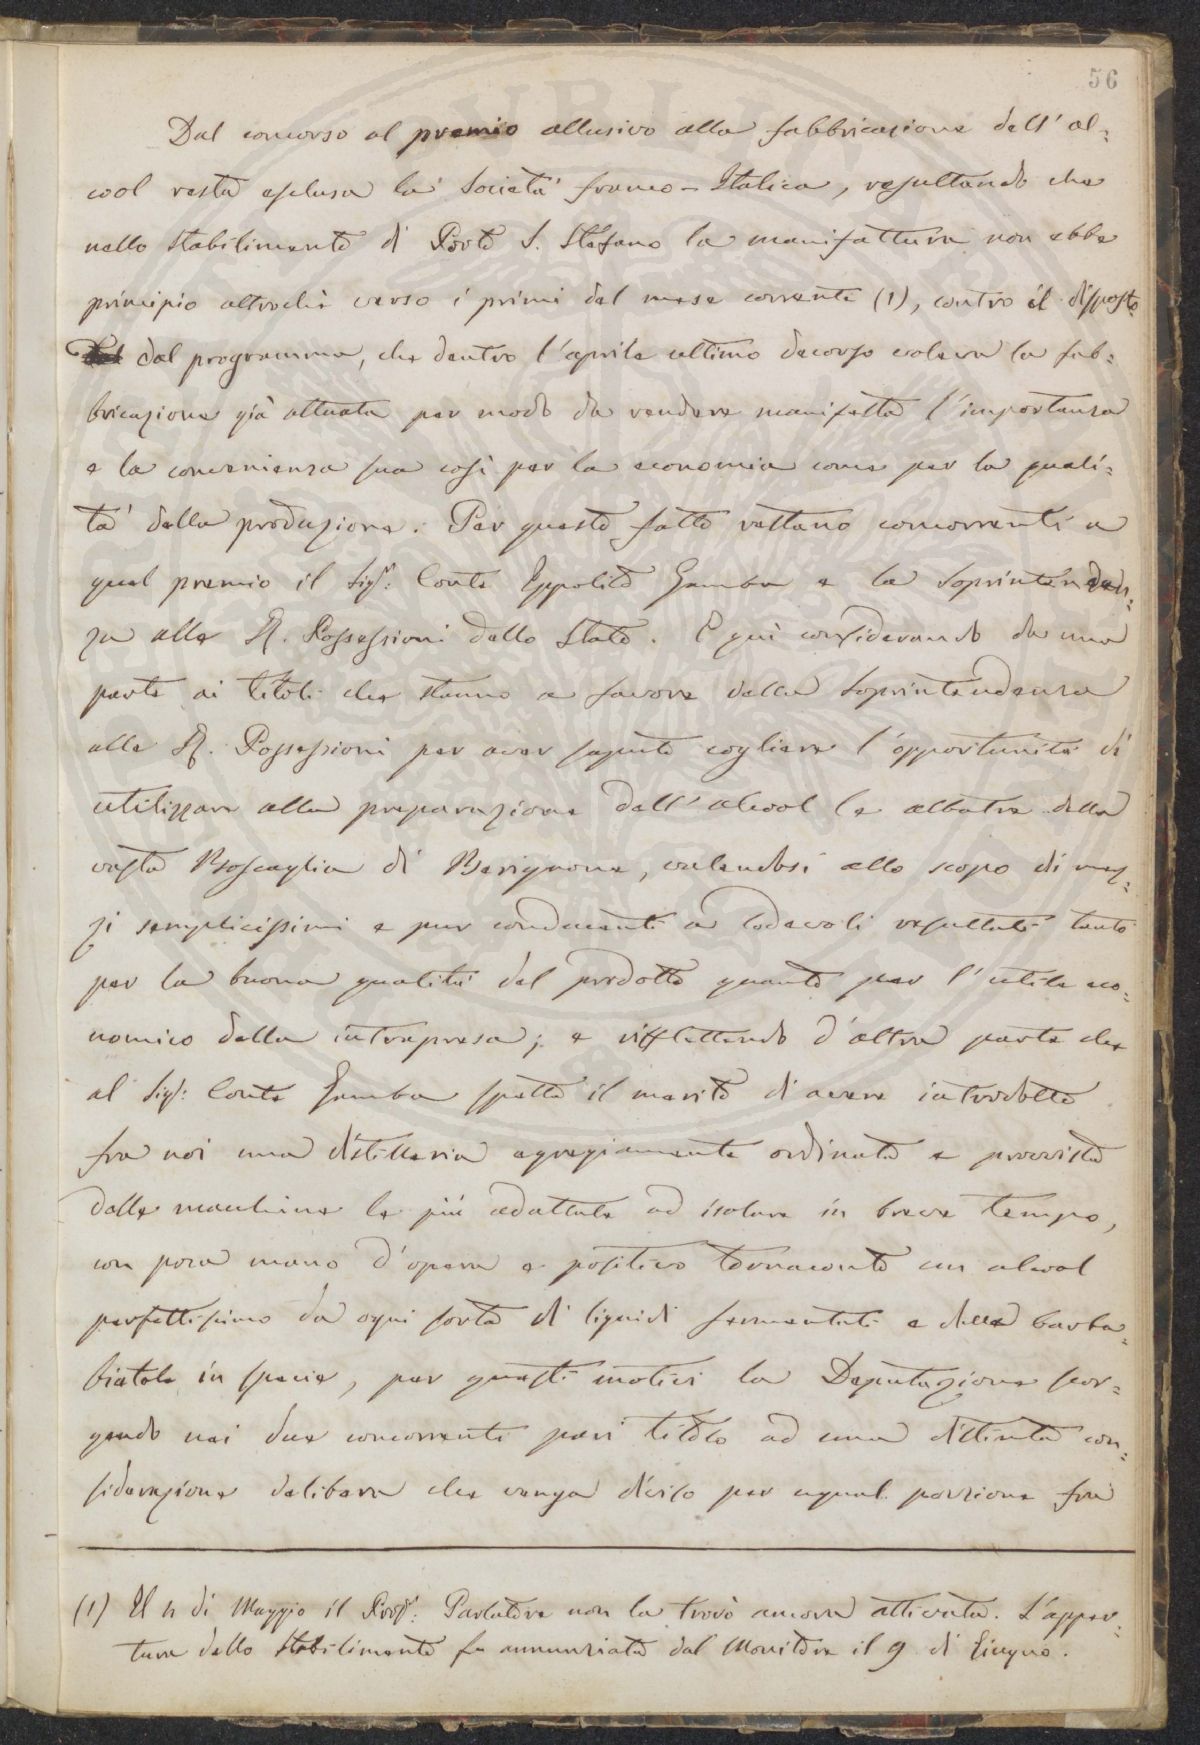 56
Dal concorso al premio allusivo alla fabbricazione dell' al-
cool resta esclusa la Società franco-Italica, resultando che
nello stabilimento di Porto S. Stefano la manifattura non ebbe
principio altrochè verso i primi del mese corrente (1), contro il disposto
dal programma, che dentro l'aprile ultimo decorso voleva la fab-
bricazione già attuata per modo da rendere manifesta l'importanza
e la convenienza sua così per la economia come per la quali-
tà della produzione. Per questo fatto restano concorrenti a
quel premio il Sigr. Conte Ippolito Gamba e la Soprintenden-
za alle R. Possessioni dello Stato. E qui considerando da una
parte ai titoli che stanno a favore della Soprintendenza
alle R. Possessioni per aver saputo cogliere l'opportunità di
utilizzare alla preparazione dell' alcool le albatre della
vasta Boscaglia di Berignone, valendosi allo scopo di mez-
zi semplicissimi e pur conducenti a lodevoli resultati tanto
per la buona qualità del prodotto quanto per l'utile eco-
nomico della intrapresa; e riflettendo d'altra parte che
al Sigr. Conte Gamba spetta il merito di avere introdotto
fra noi una distilleria egregiamente ordinata e provvista
delle macchine le più adattate ad isolare in breve tempo,
con poca mano d'opera e positivo tornaconto un alcool
perfettissimo da ogni sorta di liquidi fermentati e della barba-
bietola in specie, per questi motivi la Deputazione scor-
gendo nei due concorrenti pari titolo ad una distinta con-
siderazione delibera che venga diviso per egual porzione fra
(1) Il di Maggio il Prof. Parlatore non la trovò ancora attivata. L'aper-
tura dello Stabilimento fu annunziata dal Monitore il 9 di Giugno.